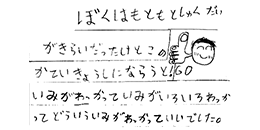 ぼくはもともとしゃくだい
がきらいだったけとこの
かていきょうしにならうと!GO
いみがわかっていみがいろいろわかっ
てどういういみがわかっていいでした。